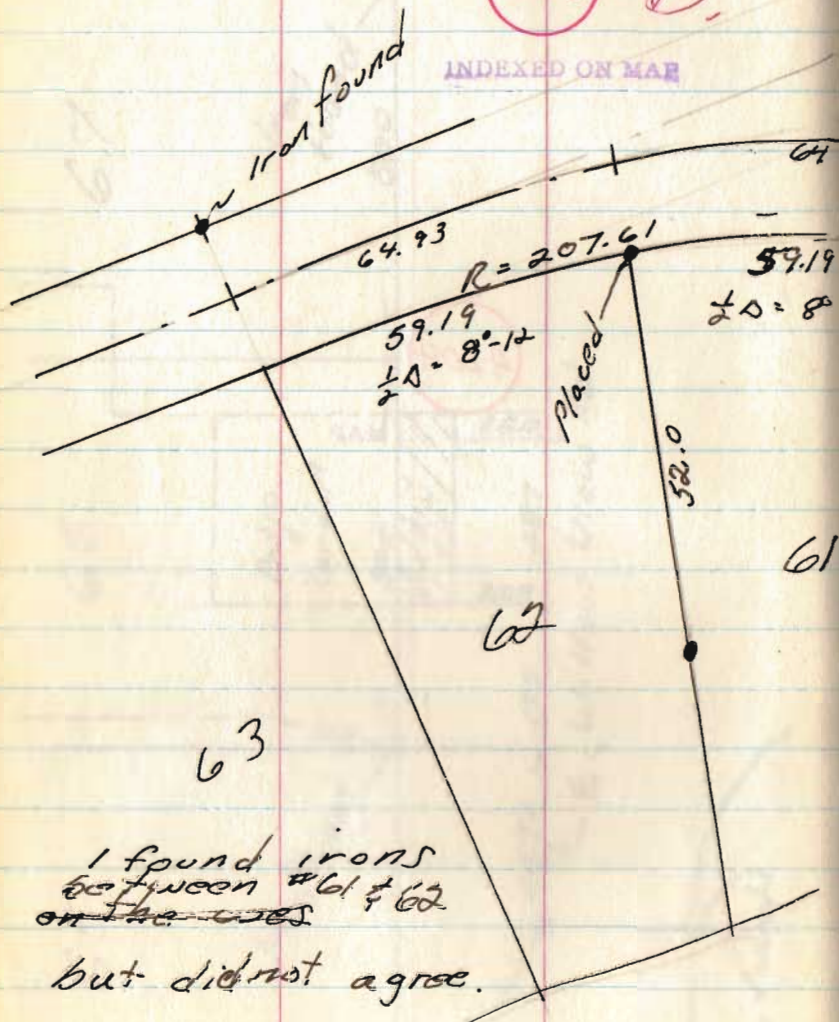 INDEXED ON MAP
Iron found
64
64.93
R = 207.61
59.19
½Δ = 8°-12
59.19
½Δ = 8°
Placed
52.0
61
62
63
I found irons
between #61 & 62
on the
but did not agree.